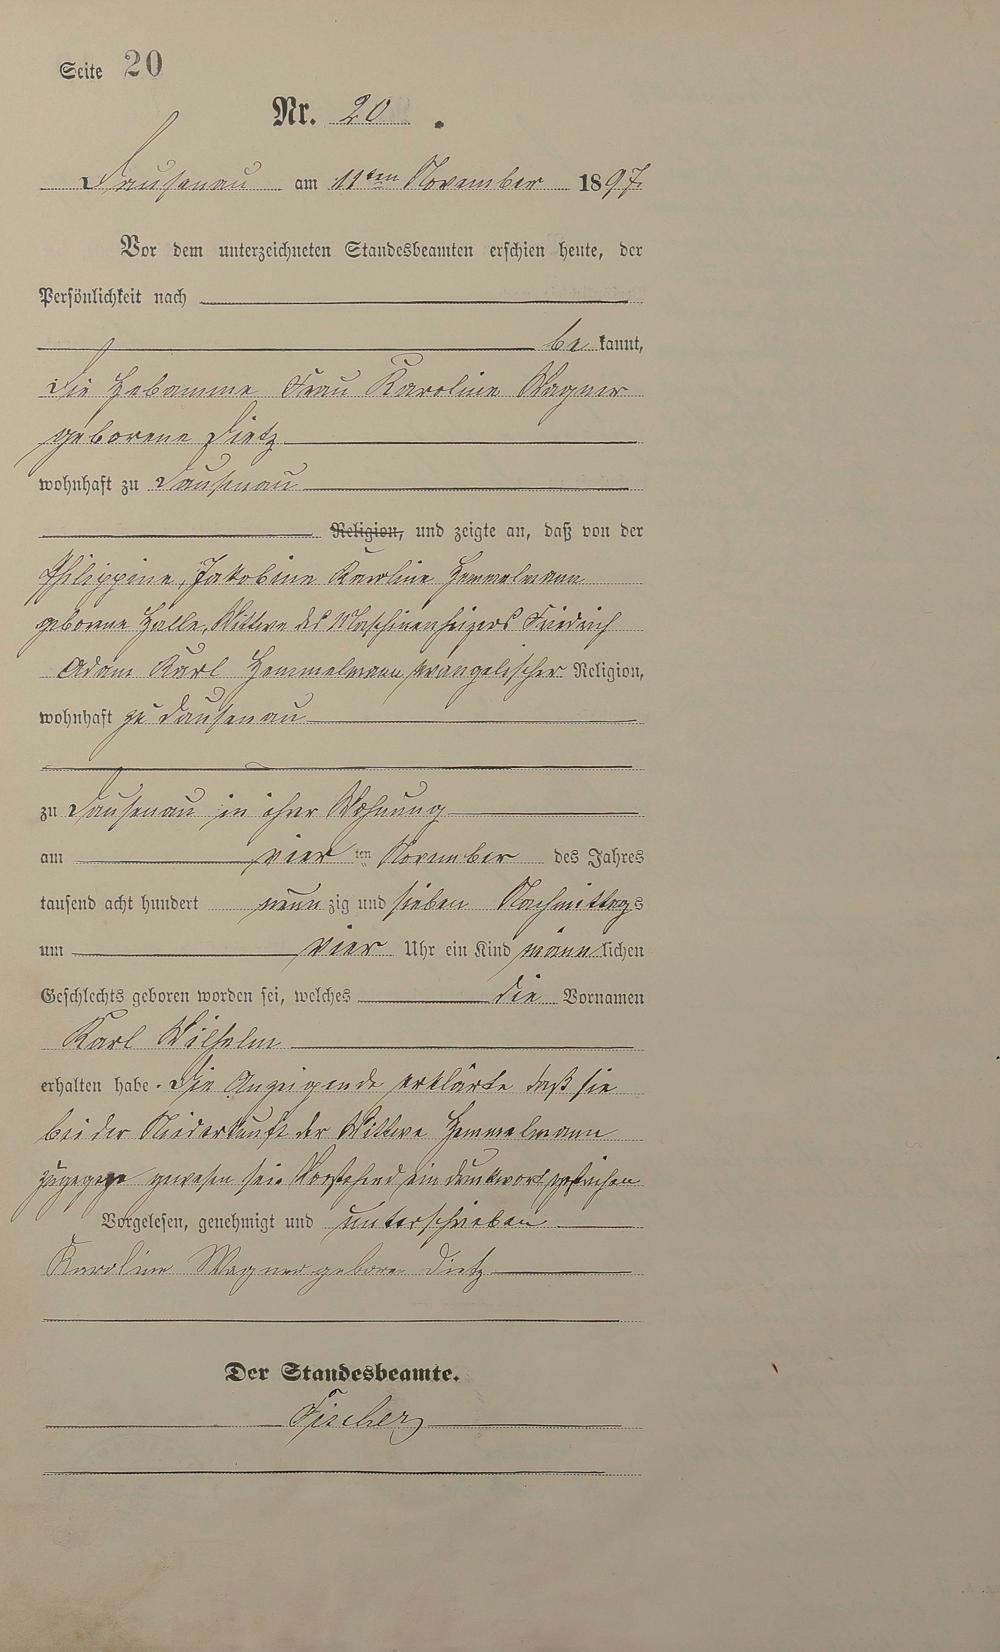 Seite 20
Nr. 20.
Dausenau am 11ten November 1897.
Vor dem unterzeichneten Standesbeamten erschien heute, der
Persönlichkeit nach
be kannt,
die Hebamme Frau Karoline Wagner
geborene Dietz
wohnhaft zu Dausenau
Religion, und zeigte an, daß von der
Philippine, Jakobine Karoline Hemmelmann
geborene Halle, Wittwe des Maschinenheizers Friedrich
Adam Karl Hemmelmann, evangelischer Religion,
wohnhaft zu Dausenau
zu Dausenau in ihrer Wohnung
am vier ten November des Jahres
tausend acht hundert neun zig und sieben Nachmittags
um vier Uhr ein Kind männ lichen
Geschlechts geboren worden sei, welches die Vornamen
Karl Wilhelm
erhalten habe. Die Anzeigende erklärte daß sie
bei der Niederkunft der Wittwe Hemmelmann
zugegen gewesen sei. Vorstehend ein Druckwort gestrichen
Vorgelesen, genehmigt und unterschrieben
Karoline Wagner geboren Dietz
Der Standesbeamte.
Fischer